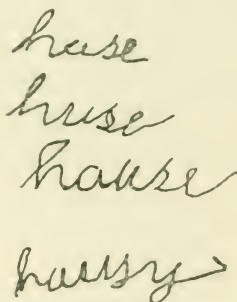 huse
huse
hause
housy